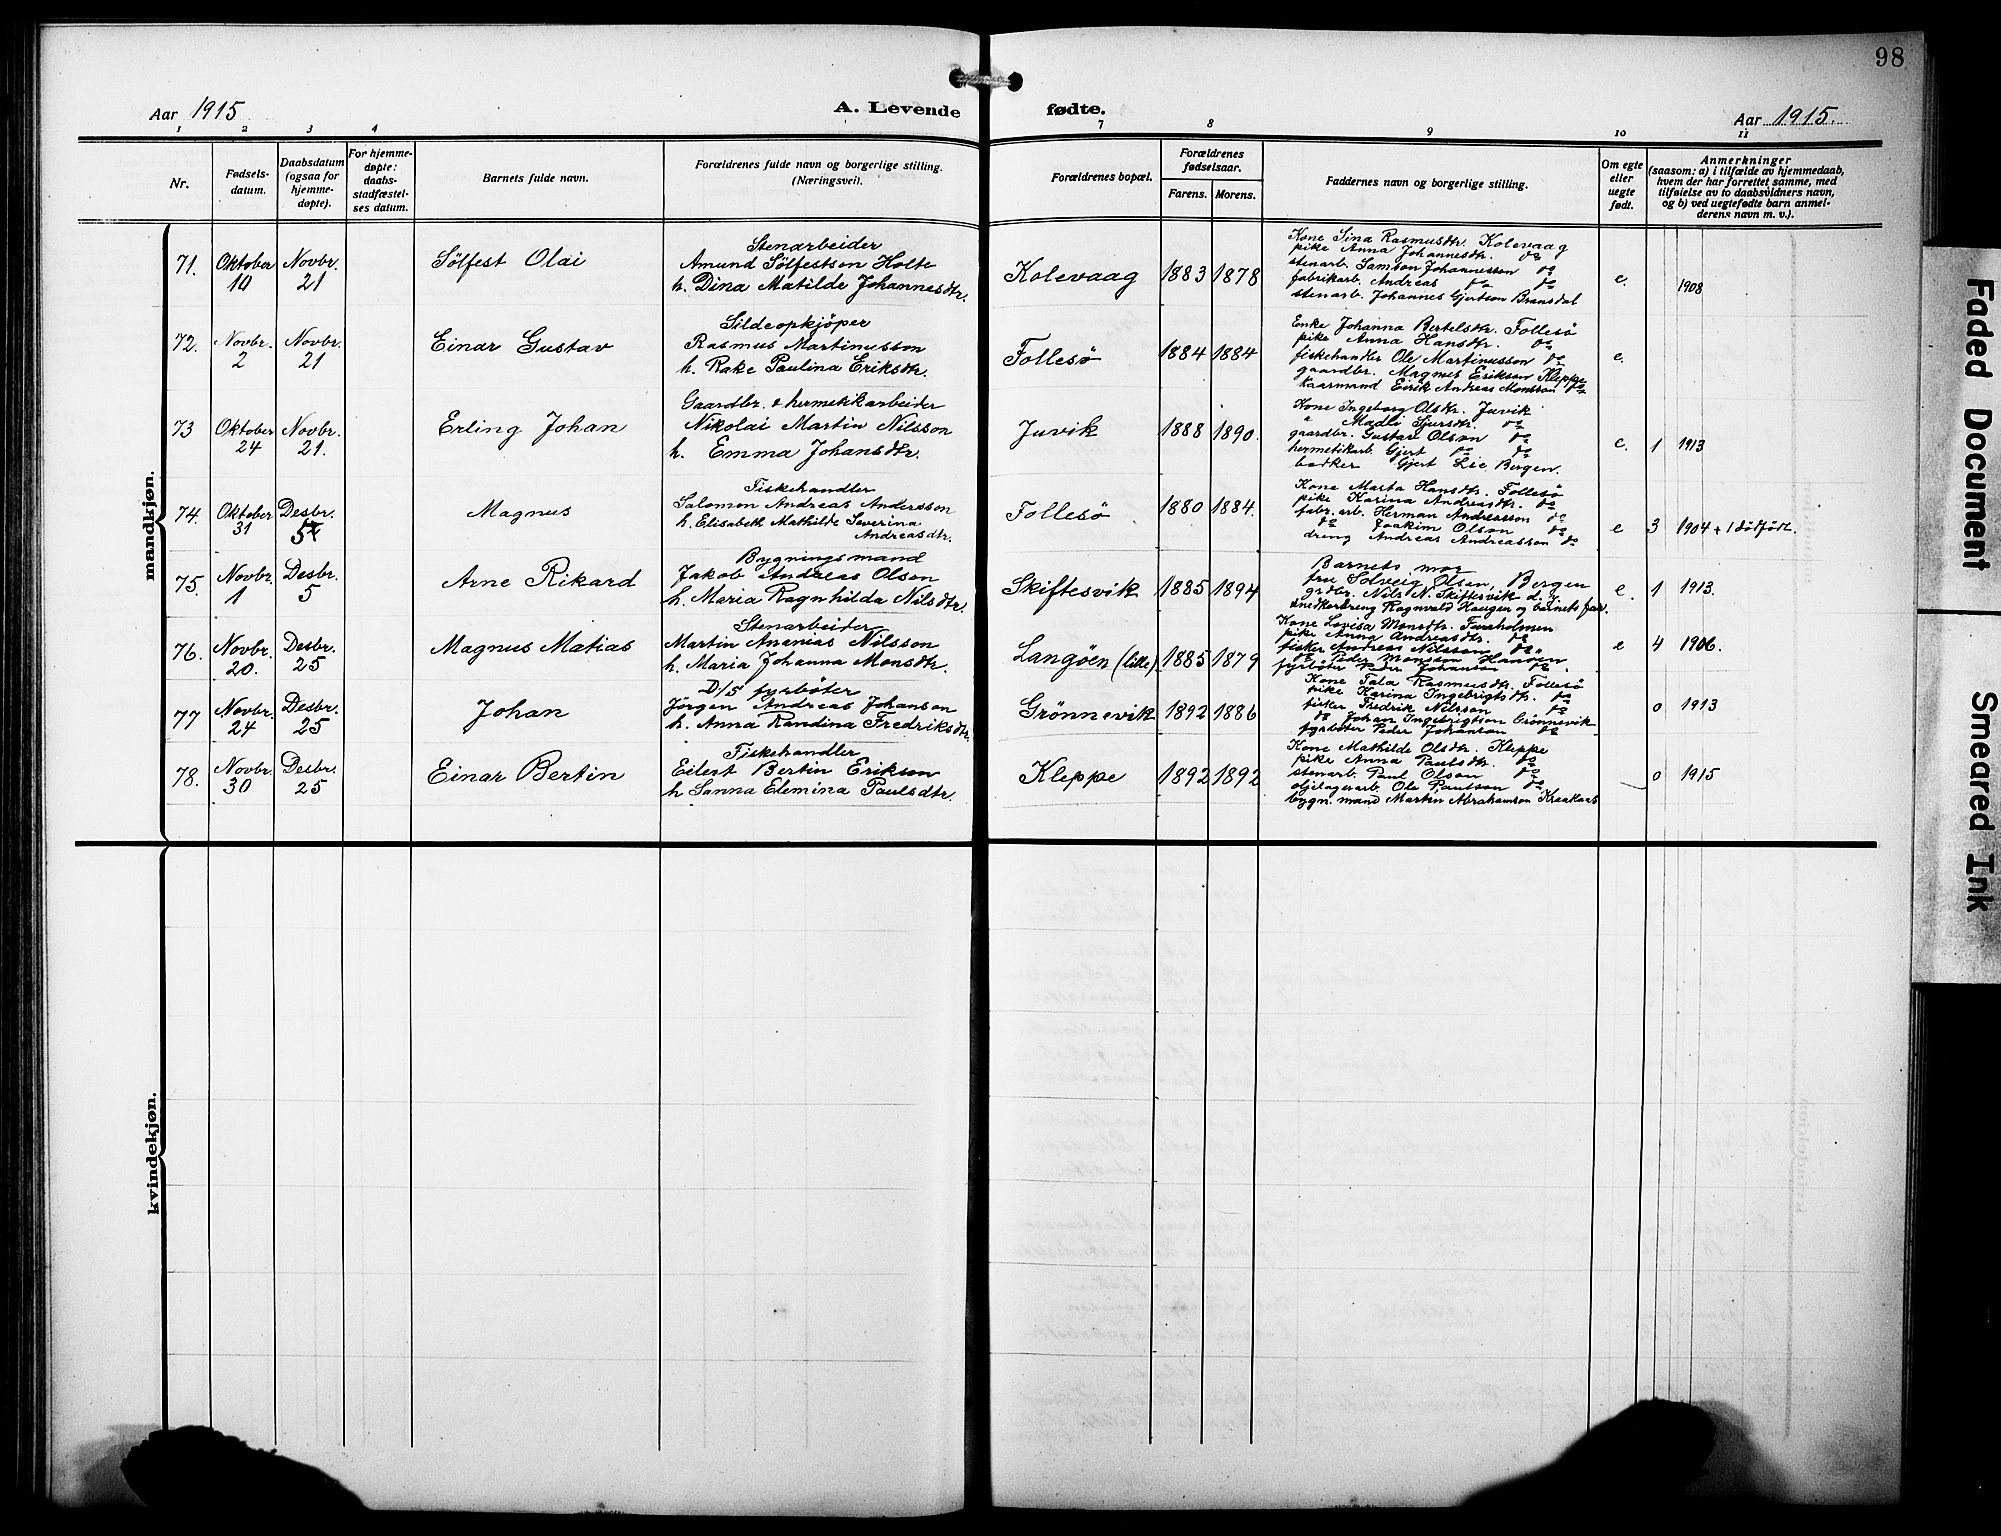 98
Aar 1915
A. Levende
fødte.
Aar 1915.
1 2 3 4
7 8 9 10 11
Nr.
Fødsels-
datum.
Daabsdatum
(ogsaa for
hjemme-
døpte).
For hjemme-
døpte:
daabs-
stadfæstel-
ses datum.
Barnets fulde navn.
Forældrenes fulde navn og borgerlige stilling.
(Næringsvei).
Forældrenes bopæl.
Forældrenes
fødselsaar.
Farens. Morens.
Faddernes navn og borgerlige stilling.
Om egte
eller
uegte
født.
Anmerkninger
(saasom: a) i tilfælde av hjemmedaab,
hvem der har forrettet samme, med
tilføielse av to daabsvidners navn,
og b) ved uegtefødte barn anmel-
derens navn m. v.).
mandkjøn.
71.
Oktober
10
Novbr.
21
Sölfest Olai
Stenarbeider
Amund Sölfestson Holte
h. Dina Matilde Johannesdtr.
Kolevaag
1883 1878
Kone Sina Rasmusdtr. Kolevaag
pike Anna Johannesdtr. do
stenarb. Samson Johannesson do
fabrikarb. Andreas do do
stenarb. Johannes Gjertson Bransdal
e.
1908
72.
Novbr.
2
Novbr.
21
Einar Gustav
Sildeopkjöper
Rasmus Martinusson
h. Rake Paulina Eriksdtr.
Follesö
1884 1884
Enke Johanna Bertelsdtr. Follesö
pike Anna Hansdtr. do
fiskehandler Ole Martinusson do
gaardbr. Magnus Erikson Kleppe
kaarmand Eirik Andreas Monsson do
e.
73
Oktober
24
Novbr.
21.
Erling Johan
Gaardbr. & hermetikarbeider
Nikolai Martin Nilsson
h. Emma Johansdtr.
Juvik
1888 1890.
Kone Ingeborg Olsdtr. Juvik
" Madli Sjursdtr. do
gaardbr. Gustav Olson do
hermetikarb. Gjert do do
bødker Gjert Lie, Bergen.
e. 1 1913
74.
Oktober
31
Desbr.
5
Magnus
Fiskehandler
Salomon Andreas Andersson
h. Elisabeth Mathilde Severina
Andreasdtr.
Follesö
1880 1884.
Kone Marta Hansdtr. Follesö
pike Karina Andreasdtr. do
fabr. arb. Herman Andreasson do
do Joakim Olson do
dreng Andreas Andreasson do
e 3 1904 + 1 dödfödt.
75.
Novbr.
1
Desbr.
5
Arne Rikard
Bygningsmand
Jakob Andreas Olson
h. Maria Ragnhilda Nilsdtr.
Skiftesvik
1885 1894
Barnets mor
fru Solveig Olsen, Bergen
grdbr. Nils N. Skiftesvik d. y.
snedkerdreng Ragnvald Haugen og barnets far.
e. 1 1913.
76.
Novbr.
20.
Desbr.
25
Magnus Matias
Stenarbeider
Martin Ananias Nilsson
h. Maria Johanna Monsdtr.
Langöen (lille)
1885 1879
Kone Lovisa Monsdtr.
pike Anna Andreasdtr. do
fisker Andreas Nilsson do
do Peder Monsson Hansen
fyrböter Peder Johanson do
e 4 1906.
77
Novbr.
24
Desbr.
25
Johan
D/S fyrböter
Jörgen Andreas Johanson
h. Anna Randina Fredriksdtr.
Grönnevik
1892 1886
Kone Tala Rasmusdtr. Follesö
pike Karina Ingebrigtsdtr. do
fisker Fredrik Nilsson do
do Johan Ingebrigtson Grönnevik
fyrböter Peder Johanson do
0 1913
78.
Novbr.
30
Desbr.
25
Einar Bertin
Fiskehandler
Eilert Bertin Erikson
h Sanna Elemina Paulsdtr.
Kleppe
1892 1892
Kone Mathilde Olsdtr. Kleppe
pike Anna Paulsdtr. do
stenarb. Paul Olson do
oljelagerarb. Ole Paulson do
bygn. mand Martin Abrahamson Kraakaas
0 1915
kvindekjøn.
Faded Document
Smeared Ink